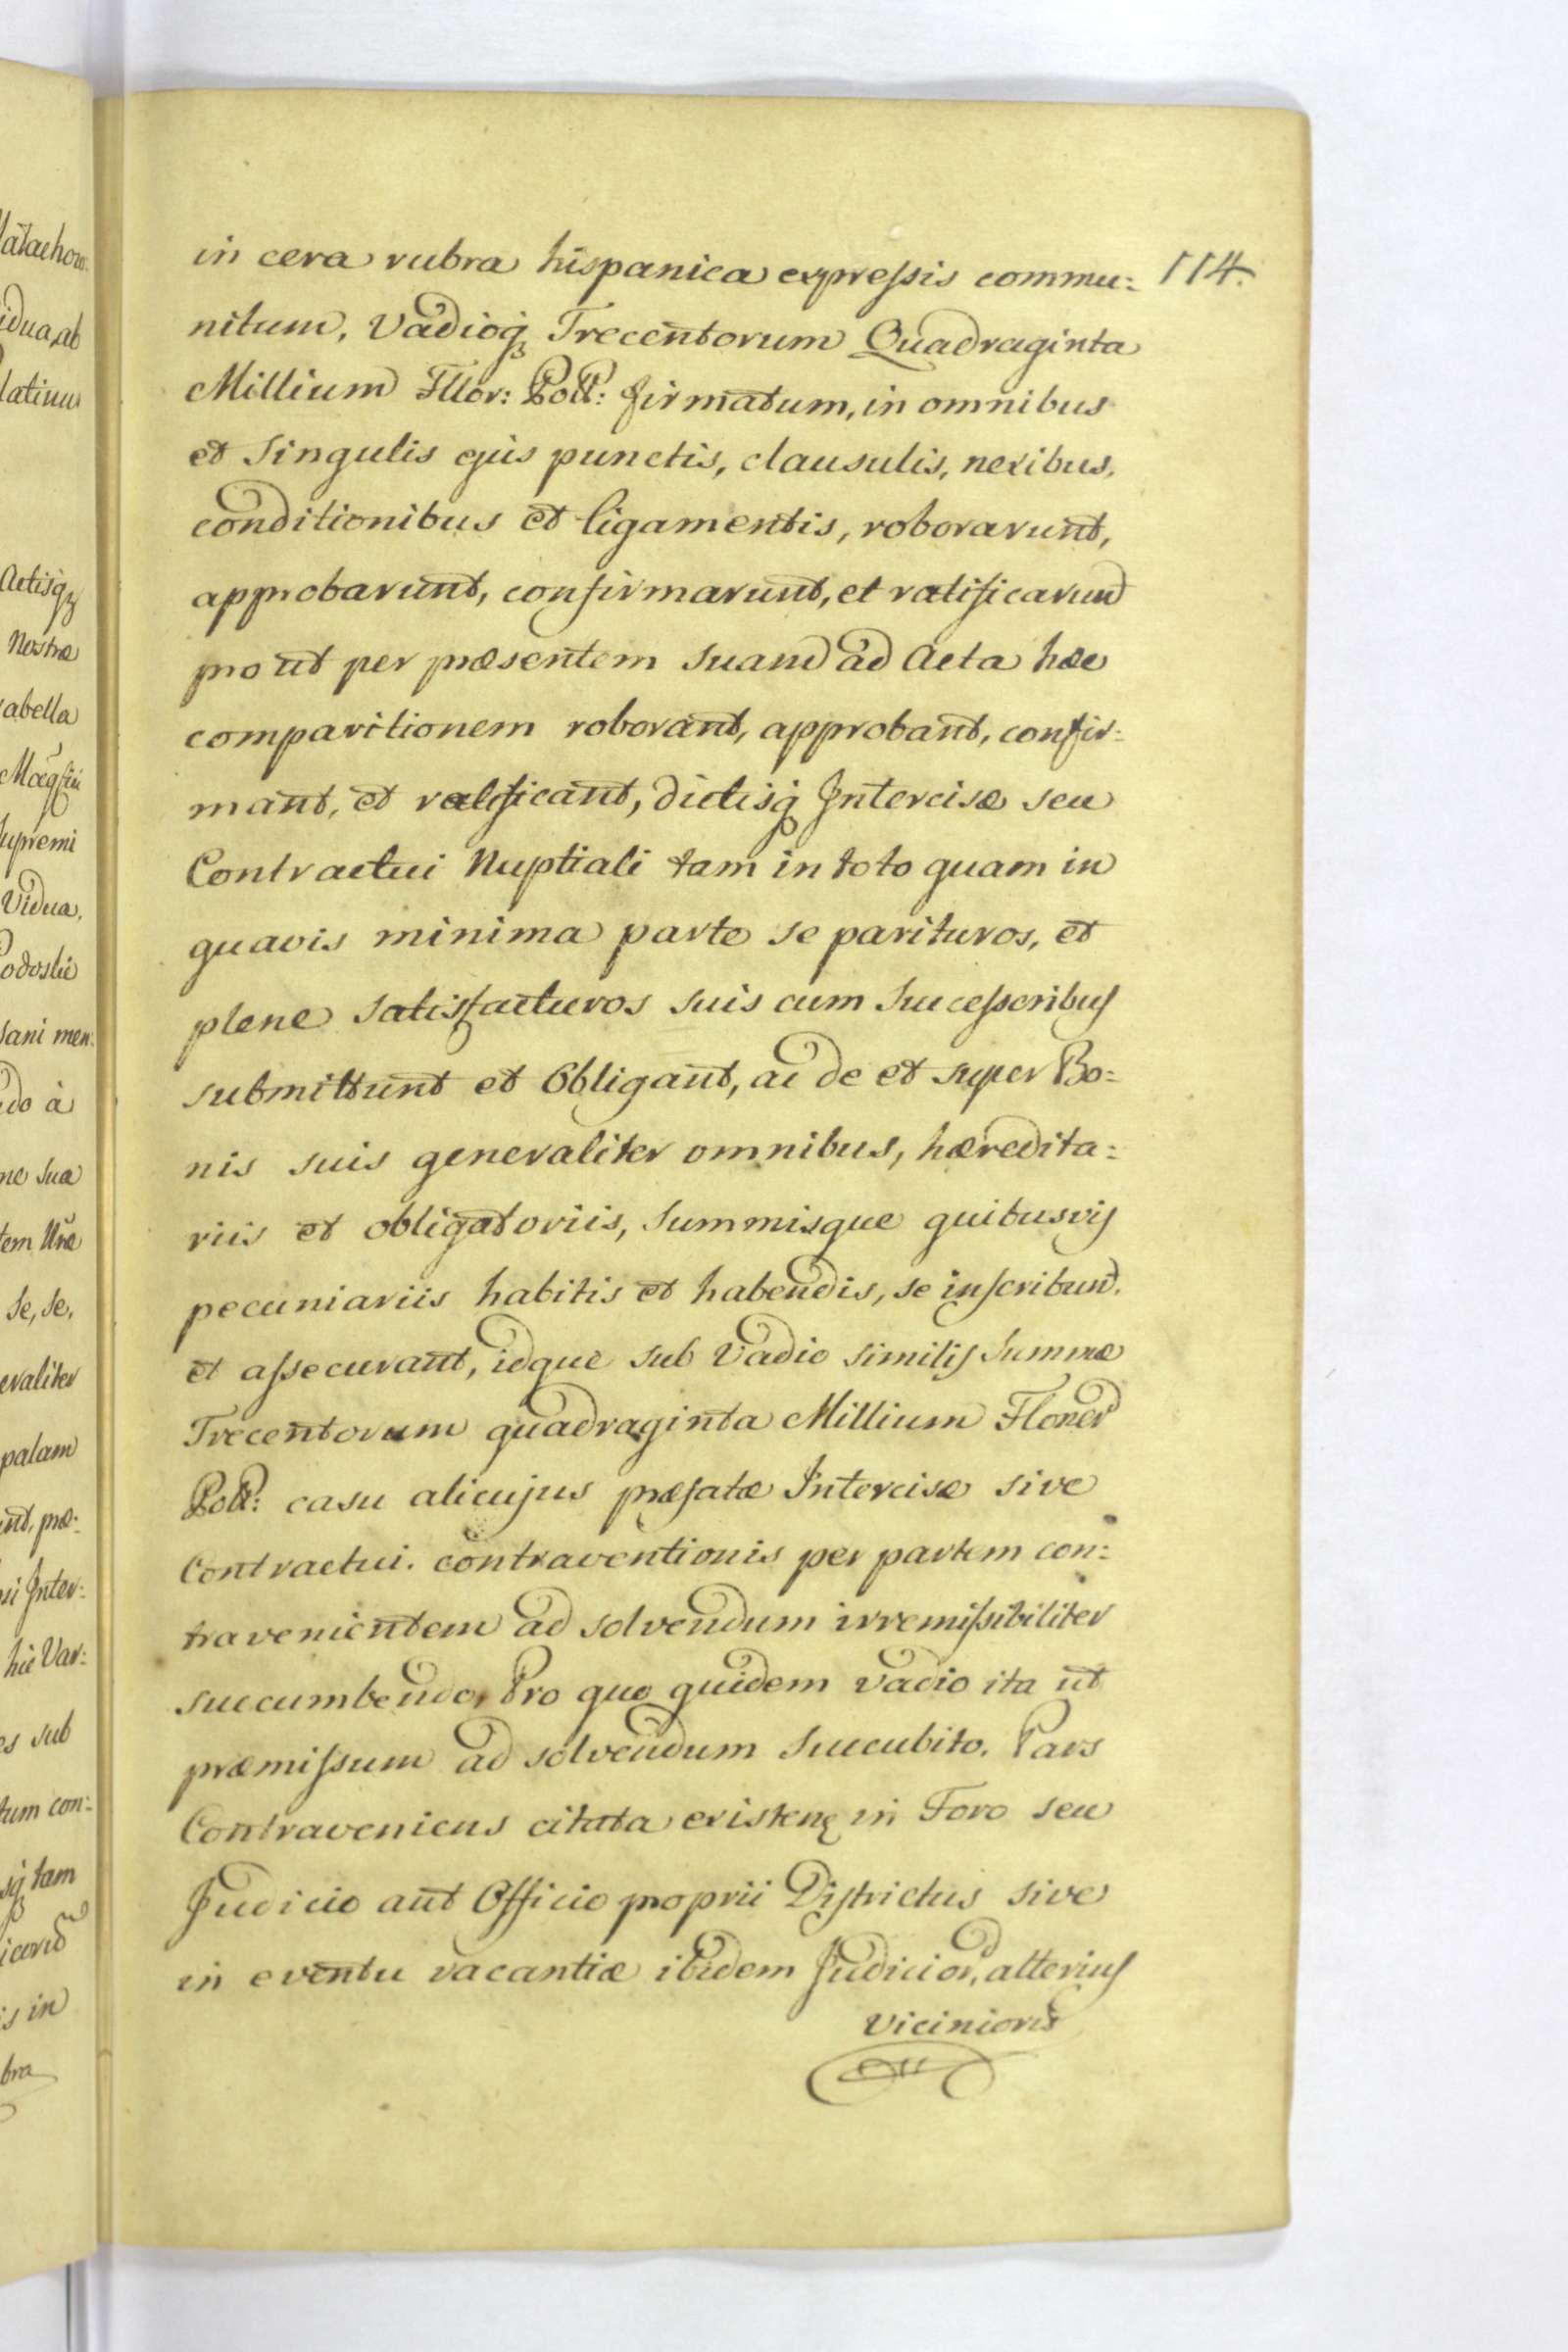 in cera rubra hispanica expressis commu: 114.
nitum, Vadioq́ȝ Trecentorum Quadraginta
Millium Fllor: Poll: firmatum, in omnibus
et Singulis ejus punctis, clausulis, nexibus,
conditionibus et ligamentis, roborarunt,
approbarunt, confirmarunt, et ratificarunt
prout per præsentem suam ad Acta hæc
comparitionem roborant, approbant, confir:
mant, et ratificant, dictisq́ Intercisæ seu
Contractui Nuptiali tam in toto quam in
quavis minima parte se parituros, et
plene satisfacturos suis cum Successoribus
submittunt et Obligant, ac de et super Bo=
nis suis generaliter omnibus, hæredita:
riis et obligatoriis, Summisque quibusvis
pecuniariis habitis et habendis, se inscribunt.
et assecurant, idque sub Vadio similis Summæ
Trecentorum quadraginta Millium
Poll: casu alicujus præfatæ Intercisæ sive
Contractui. contraventionis per partem con:
travenientem ad solvendum irremissibiliter
succumbendo, Pro quo quidem vadio ita ut
præmissum ad solvendum Succubito. Pars
Contraveniens citata existens in Foro seu
Judicio aut Officio proprii Districtus sive
in eventu vacantiæ ibidem Judicior, alterius
Vicinioris
latinus
Actisqȝ
Nostræ
abella
upremi
Vidua,
sani men:
do à
ne Sua
Se, Se,
evaliter
palam
hic Var:
es sub
tum con:
sq́ tam
s in
bra